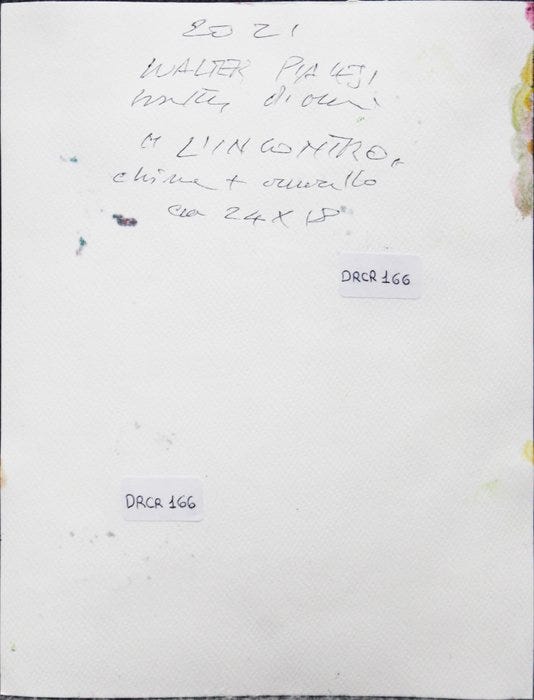 2021
WALTER PIACESI
"L'INCONTRO"
china + acquerello
cm 24 X 18
DRCR 166
DRCR 166